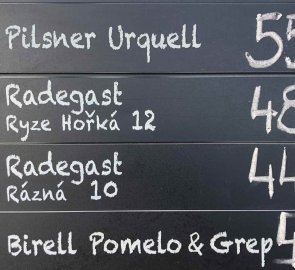 Pilsner Urquell 55
Radegast 48
Ryze Hořká 12
Radegast 44
Rázná 10
Birell Pomelo & Grep